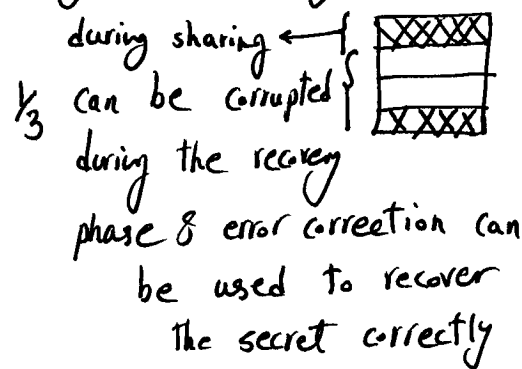 during sharing
1/3 can be corrupted
during the recovery
phase & error correction can
be used to recover
the secret correctly